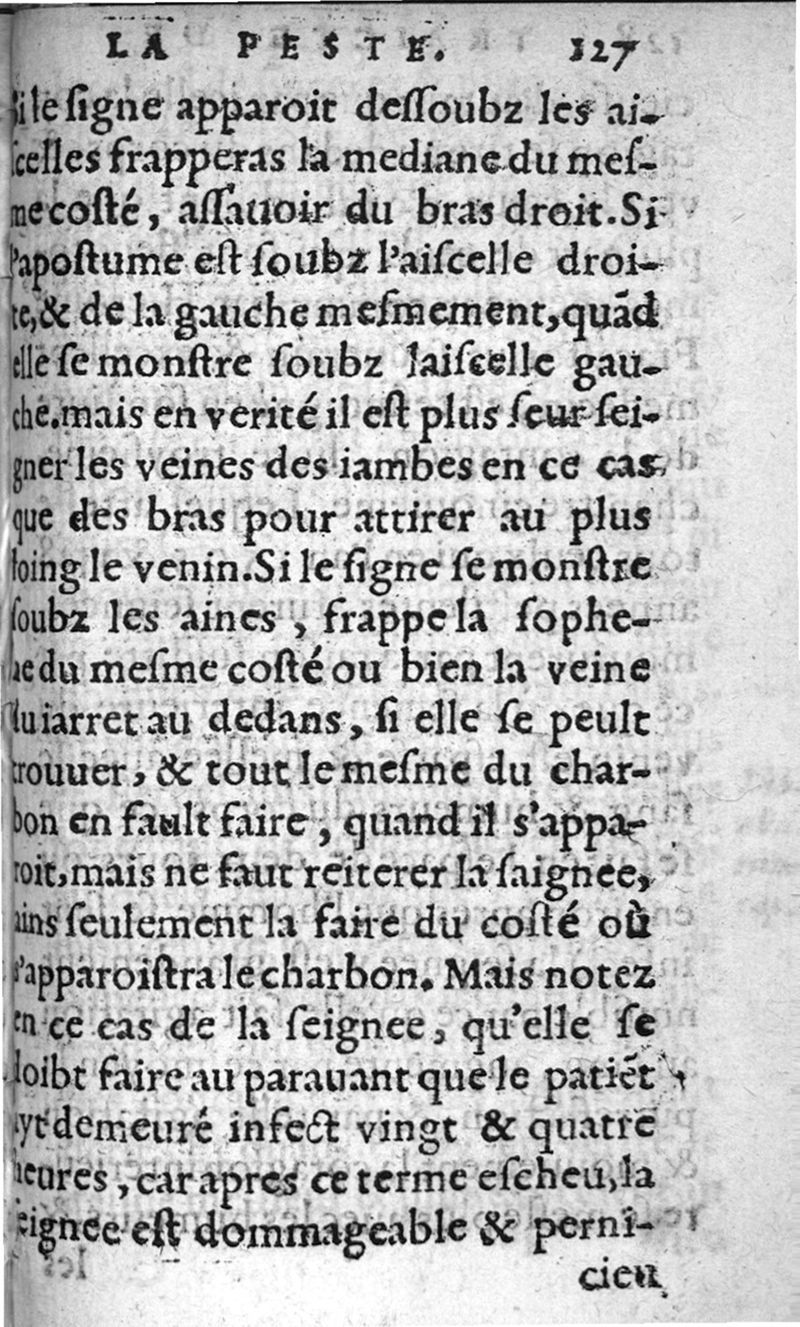 LA PESTE. 127
Si le ſigne apparoit deſſoubz les ai-
ſcelles frapperas la mediane du meſ-
me coſté, aſſauoir du bras droit. Si
l'apoſtume eſt ſoubz l'aiſcelle droi-
te, & de la gauche meſmement, quãd
elle ſe monſtre ſoubz laiſcelle gau-
che. mais en verité il eſt plus ſeur ſei-
gner les veines des iambes en ce cas,
que des bras pour attirer au plus
loing le venin. Si le ſigne ſe monſtre
ſoubz les aines, frappe la ſophe-
ne du meſme coſté ou bien la veine
du iarret au dedans, ſi elle ſe peult
trouuer, & tout le meſme du char-
bon en fault faire, quand il s'appa-
roit, mais ne faut reiterer la ſaignee,
ains ſeulement la faire du coſté où
s'apparoiſtra le charbon. Mais notez
en ce cas de la ſeignee, qu'elle ſe
doibt faire au parauant que le patiẽt
ayt demeuré infect vingt & quatre
heures, car apres ce terme eſcheu, la
ſeignee eſt dommageable & perni-
cieu